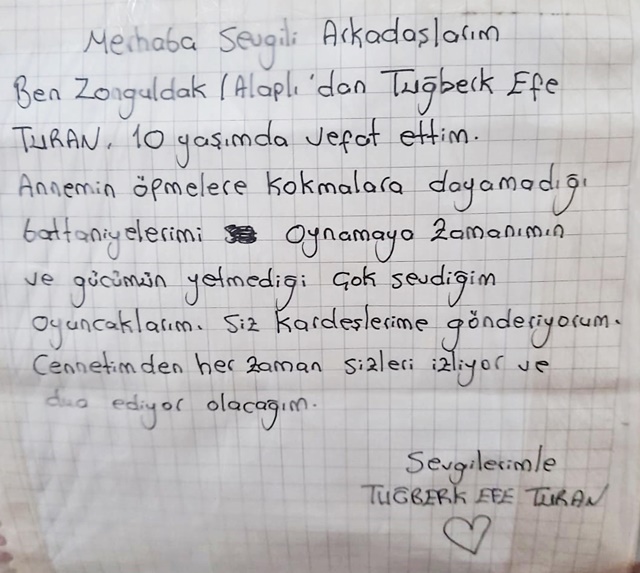 Merhaba Sevgili Arkadaşlarım
Ben Zonguldak / Alaplı'dan Tuğberk Efe
TURAN. 10 yaşımda vefat ettim.
Annemin öpmelere kokmalara dayamadığı
battaniyelerimi oynamaya zamanımın
ve gücümün yetmediği çok sevdiğim
oyuncaklarım. Siz kardeşlerime gönderiyorum.
Cennetimden her zaman sizleri izliyor ve
dua ediyor olacağım.
Sevgilerimle
TUĞBERK EFE TURAN